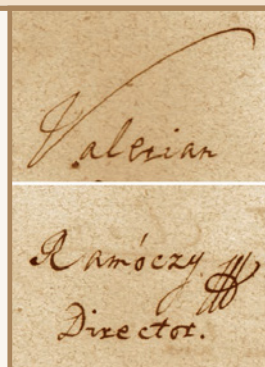 Valerian
Ramóczy
Director.